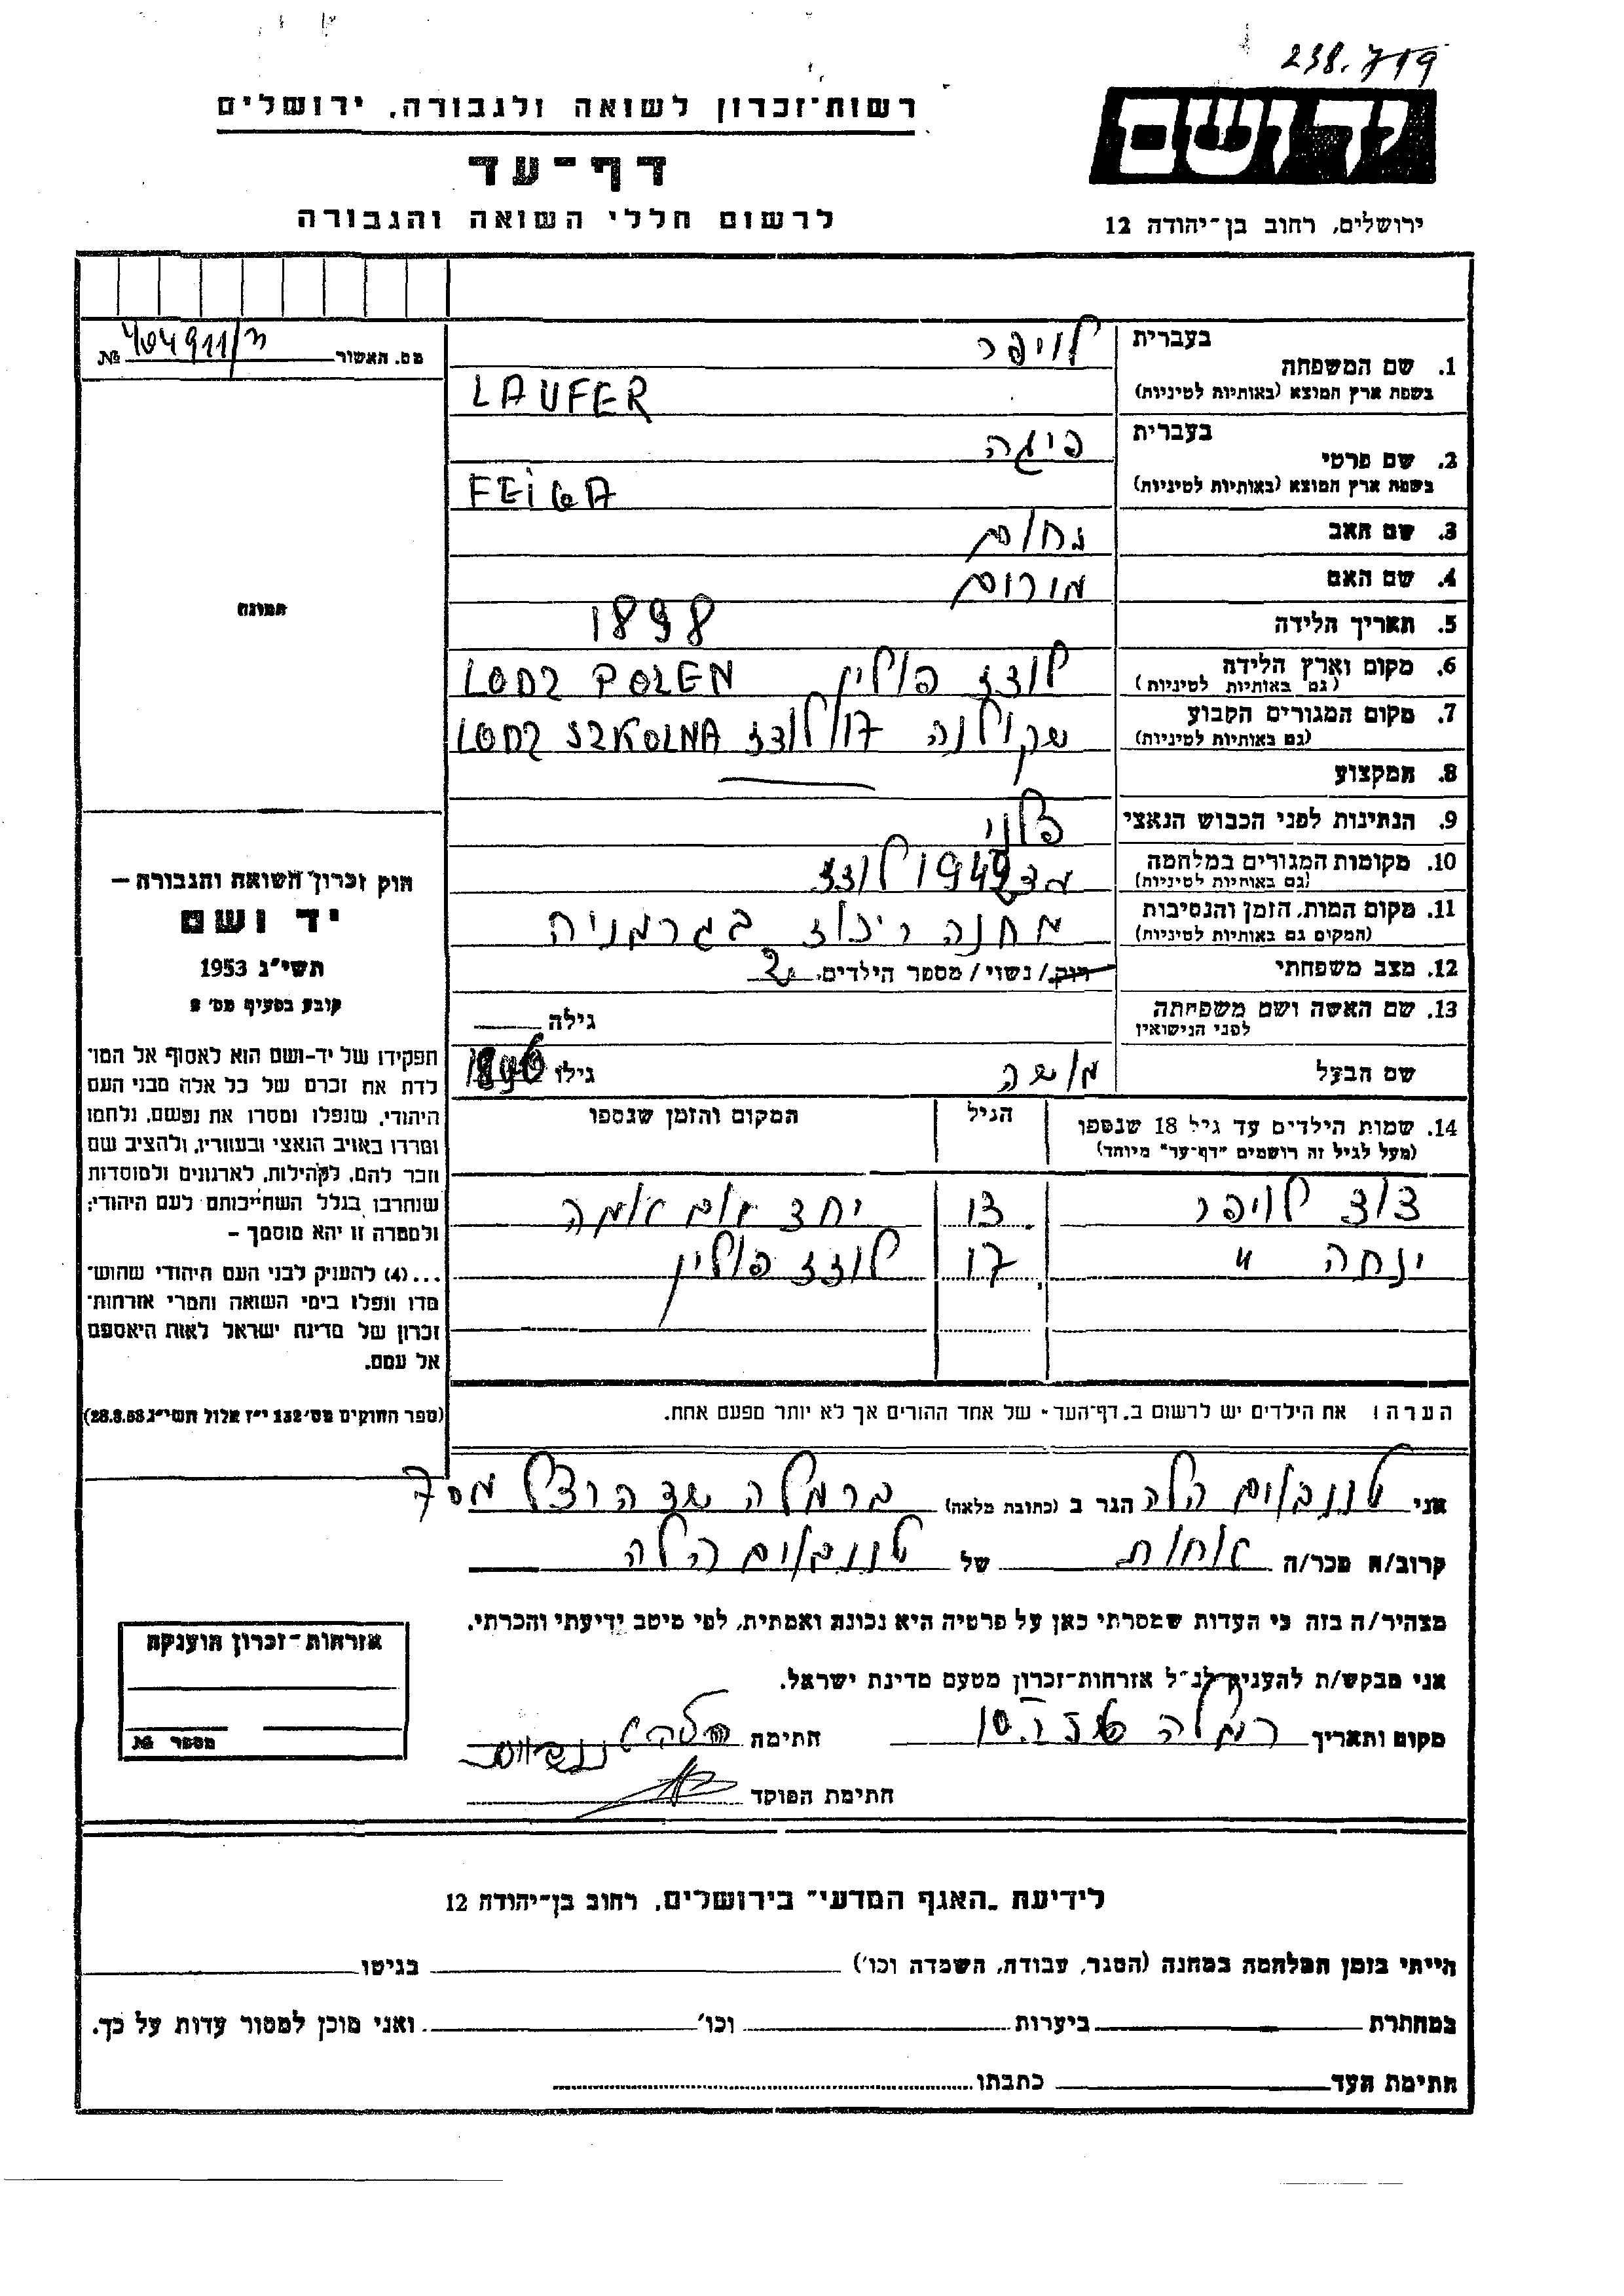 238.719
רשות־זכרון לשואה ולגבורה, ירושלים
יד ושם
דף־עד
לרשום חללי השואה והגבורה
ירושלים, רחוב בן־יהודה 12
מס. האשור № 404911/ח
1. שם המשפחה
בעברית לויפר
בשפת ארץ המוצא (באותיות לטיניות) LAUFER
2. שם פרטי
בעברית פיגה
בשפת ארץ המוצא (באותיות לטיניות) FEIGA
3. שם האב נחום
4. שם האם
5. תאריך הלידה 1898
6. מקום וארץ הלידה לודז פולין LODZ POLEN
(גם באותיות לטיניות)
7. מקום המגורים הקבוע שקולנה לודז LODZ SZKOLNA
(גם באותיות לטיניות)
8. המקצוע
9. הנתינות לפני הכבוש הנאצי פולני
10. מקומות המגורים במלחמה עד לודז
(גם באותיות לטיניות)
11. מקום המות, הזמן והנסיבות מחנה ריכוז בגרמניה
(המקום גם באותיות לטיניות)
12. מצב משפחתי רווק/נשוי/מספר הילדים 2
13. שם האשה ושם משפחתה גילה
לפני הנישואין
שם הבעל משה גילו
14. שמות הילדים עד גיל 18 שנספו הגיל המקום והזמן שנספו
(מעל לגיל זה רושמים "דף־עד" מיוחד)
דוד לויפר 13 יחד עם אמה
ינחה " 17 לודז פולין
הערה: את הילדים יש לרשום ב"דף־העד" של אחד ההורים אך לא יותר מפעם אחת.
תמונה
חוק זכרון השואה והגבורה —
יד ושם
תשי"ג 1953
קובע בסעיף מס' 2
תפקידו של יד-ושם הוא לאסוף אל המו־
לדת את זכרם של כל אלה מבני העם
היהודי, שנפלו ומסרו את נפשם, נלחמו
ומרדו באויב הנאצי ובעוזריו, ולהציב שם
וזכר להם, לקהילות, לארגונים ולמוסדות
שנחרבו בגלל השתייכותם לעם היהודי;
ולמטרה זו יהא מוסמך —
...(4) להעניק לבני העם היהודי שהוש־
מדו ונפלו בימי השואה והמרי אזרחות־
זכרון של מדינת ישראל לאות היאספם
אל עמם.
(ספר החוקים מס' 132 י"ז אלול תשי"ג 28.8.53)
אני טננבוים הלה הגר ב (כתובת מלאה) ברמלה שד הרצל מס 7
קרוב/ה מכר/ה אחות של טננבוים הלה
מצהיר/ה בזה כי העדות שמסרתי כאן על פרטיה היא נכונה ואמתית, לפי מיטב ידיעתי והכרתי.
אני מבקש/ת להעניק לנ"ל אזרחות־זכרון מטעם מדינת ישראל.
מקום ותאריך רמלה חתימה הלה טננבוים
חתימת הפוקד
אזרחות־זכרון הוענקה
מספר №
לידיעת "האגף המדעי" בירושלים, רחוב בן־יהודה 12
הייתי בזמן המלחמה במחנה (הסגר, עבודה, השמדה וכו') בגיטו
במחתרת ביערות וכו' ואני מוכן למסור עדות על כך.
חתימת העד כתבתו